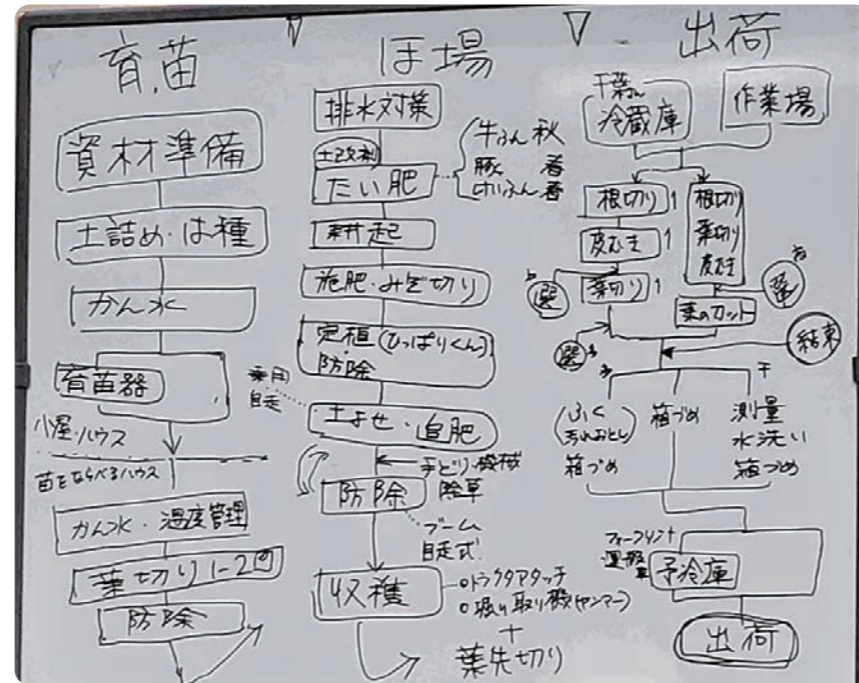 育苗
資材準備
土詰め・は種
かん水
育苗器
小屋・ハウス
苗をならべるハウス
かん水・温度管理
葉切り1-2回
防除
ほ場
排水対策
土改剤
たい肥
牛ふん 秋
豚 春
けいふん 春
耕起
施肥・みぞ切り
定植(ひっぱりくん)
防除
乗用
自走
土よせ・追肥
手どり・機械
除草
防除
ブーム
自走式
収穫
○トラクタアタッチ
○掘り取り機(ヤンマー)
+
葉先切り
出荷
千葉さん
冷蔵庫
作業場
根切り 1
皮むき 1
葉切り 1
選
選
根切り
葉切り
皮むき
葉のカット
結束
ふく
(汚れおとし)
箱づめ
箱づめ
測量
水洗い
箱づめ
フォークリフト
運搬
予冷庫
出荷